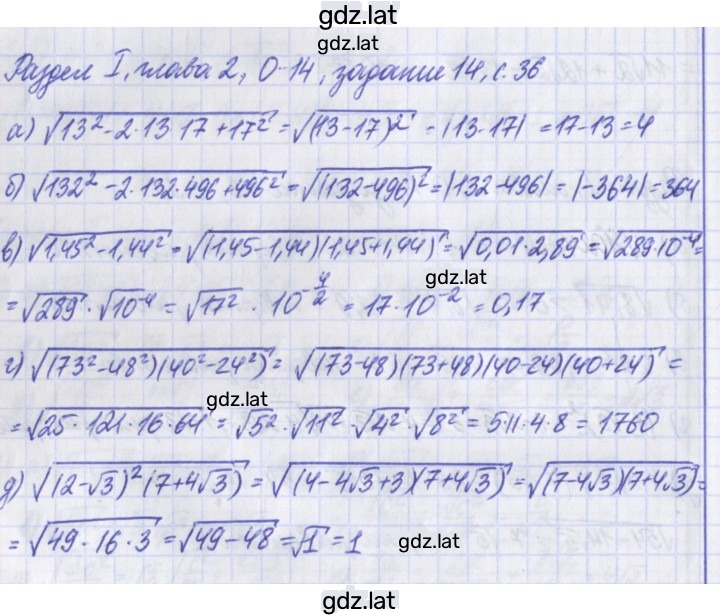 gdz.lat
gdz.lat
Раздел I, глава 2, О-14, задание 14, с. 36
а) √(13² - 2·13·17 + 17²) = √((13-17)²) = |13-17| = 17-13 = 4
б) √(132² - 2·132·496 + 496²) = √((132-496)²) = |132-496| = |-364| = 364
в) √(1,45² - 1,44²) = √((1,45-1,44)(1,45+1,44)) = √(0,01·2,89) = √(289·10⁻⁴) =
gdz.lat
= √289 · √10⁻⁴ = √17² · 10^(-4/2) = 17·10⁻² = 0,17
г) √((73² - 48²)(40² - 24²)) = √((73-48)(73+48)(40-24)(40+24)) =
gdz.lat
= √(25·121·16·64) = √5² · √11² · √4² · √8² = 5·11·4·8 = 1760
д) √((2-√3)²(7+4√3)) = √((4-4√3+3)(7+4√3)) = √((7-4√3)(7+4√3)) =
= √(49·16·3) = √(49-48) = √1 = 1
gdz.lat
gdz.lat